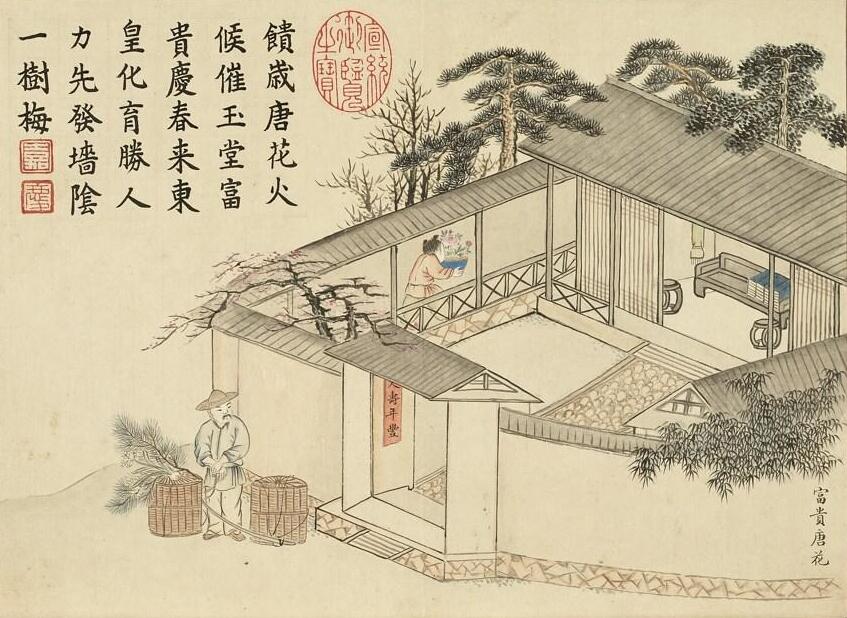 饋歲唐花火
候催玉堂富
貴慶春来東
皇化育勝人
力先發墻陰
一樹梅
嘉
慶
宣統
御覽
之寶
人壽年豐
富貴唐花